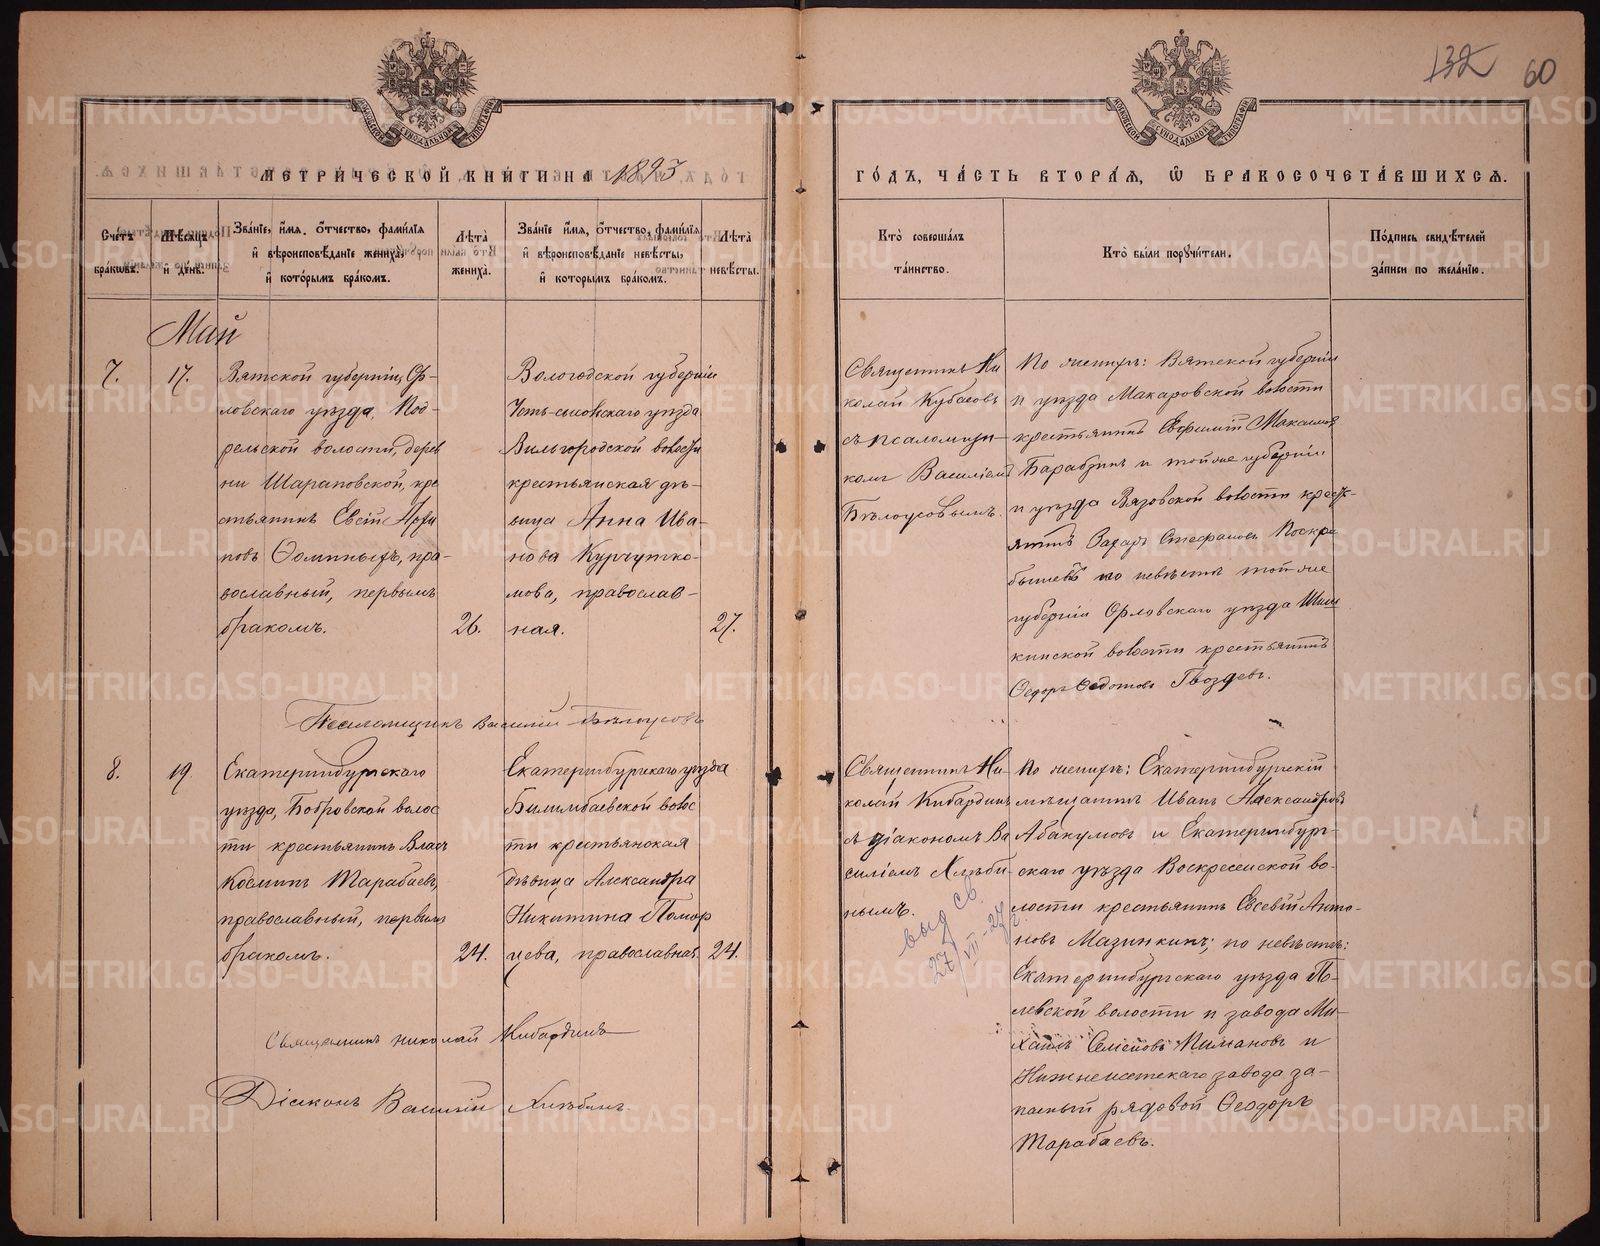 132 60
МЕТРИЧЕСКОЙ КНИГИ НА 1893
ГОДЪ, ЧАСТЬ ВТОРАЯ, Ѡ БРАКОСОЧЕТАВШИХСЯ.
Счетъ браковъ.
Мѣсяцъ и день.
Званіе, имя, отчество, фамилія и вѣроисповѣданіе жениха, и которымъ бракомъ.
Лѣта жениха.
Званіе имя, отчество, фамилія и вѣроисповѣданіе невѣсты, и которымъ бракомъ.
Лѣта невѣсты.
Кто совершалъ таинство.
Кто были поручители.
Подпись свидѣтелей записи по желанію.
Май
7. 17.
Вятской губерніи, Ор-
ловскаго уѣзда, Под-
рельской волости, дерев
ни Шараповской, кре
стьянинъ
Ѳоминыхъ, пра-
вославный, первымъ
бракомъ. 26.
Вологодской губерніи
Усть-сысольскаго уѣзда
Вильгородской волости
крестьянская дѣ-
вица Анна Ива-
нова
православ-
ная. 27.
Священникъ Ни
колай
съ псаломщи-
комъ Василіемъ
Бѣлоусовымъ.
По женихѣ: Вятской губерніи
и уѣзда Макаровской волости
крестьянинъ Евфимій Максимов
и той же губерніи
и уѣзда Вязовской волости кресть-
янинъ Захаръ Стефановъ Поскре
бышевъ по невѣстѣ той же
губерніи Орловскаго уѣзда
кинской волости крестьянинъ
Ѳедоръ Ѳедотовъ Гвоздевъ.
Псаломщикъ Василій Бѣлоусовъ
8. 19
Екатеринбургскаго
уѣзда, Бобровской волос
ти крестьянинъ Власъ
Косминъ Тарабаевъ,
православный, первымъ
бракомъ. 24.
Екатеринбургскаго уѣзда
Билимбаевской волос
ти крестьянская
дѣвица Александра
Никитина Помор
цева, православная. 24.
Священникъ Ни-
колай Кибардинъ
съ діакономъ Ва
силіемъ Хлѣби-
нымъ.
выд св.
27/VII-27 г.
По женихѣ: Екатеринбургскій
мѣщанинъ Иванъ Александровъ
Абакумовъ и Екатеринбург-
скаго уѣзда Воскресенской во-
лости крестьянинъ Евсевій Анто-
новъ Мазинкинъ; по невѣстѣ:
Екатеринбургскаго уѣзда По-
левской волости и завода Ми-
хаилъ и
Нижнеисетскаго завода за-
пасный рядовой Ѳеодоръ
Тарабаевъ.
Священникъ Николай Кибардинъ
Діаконъ Василій Хлѣбинъ